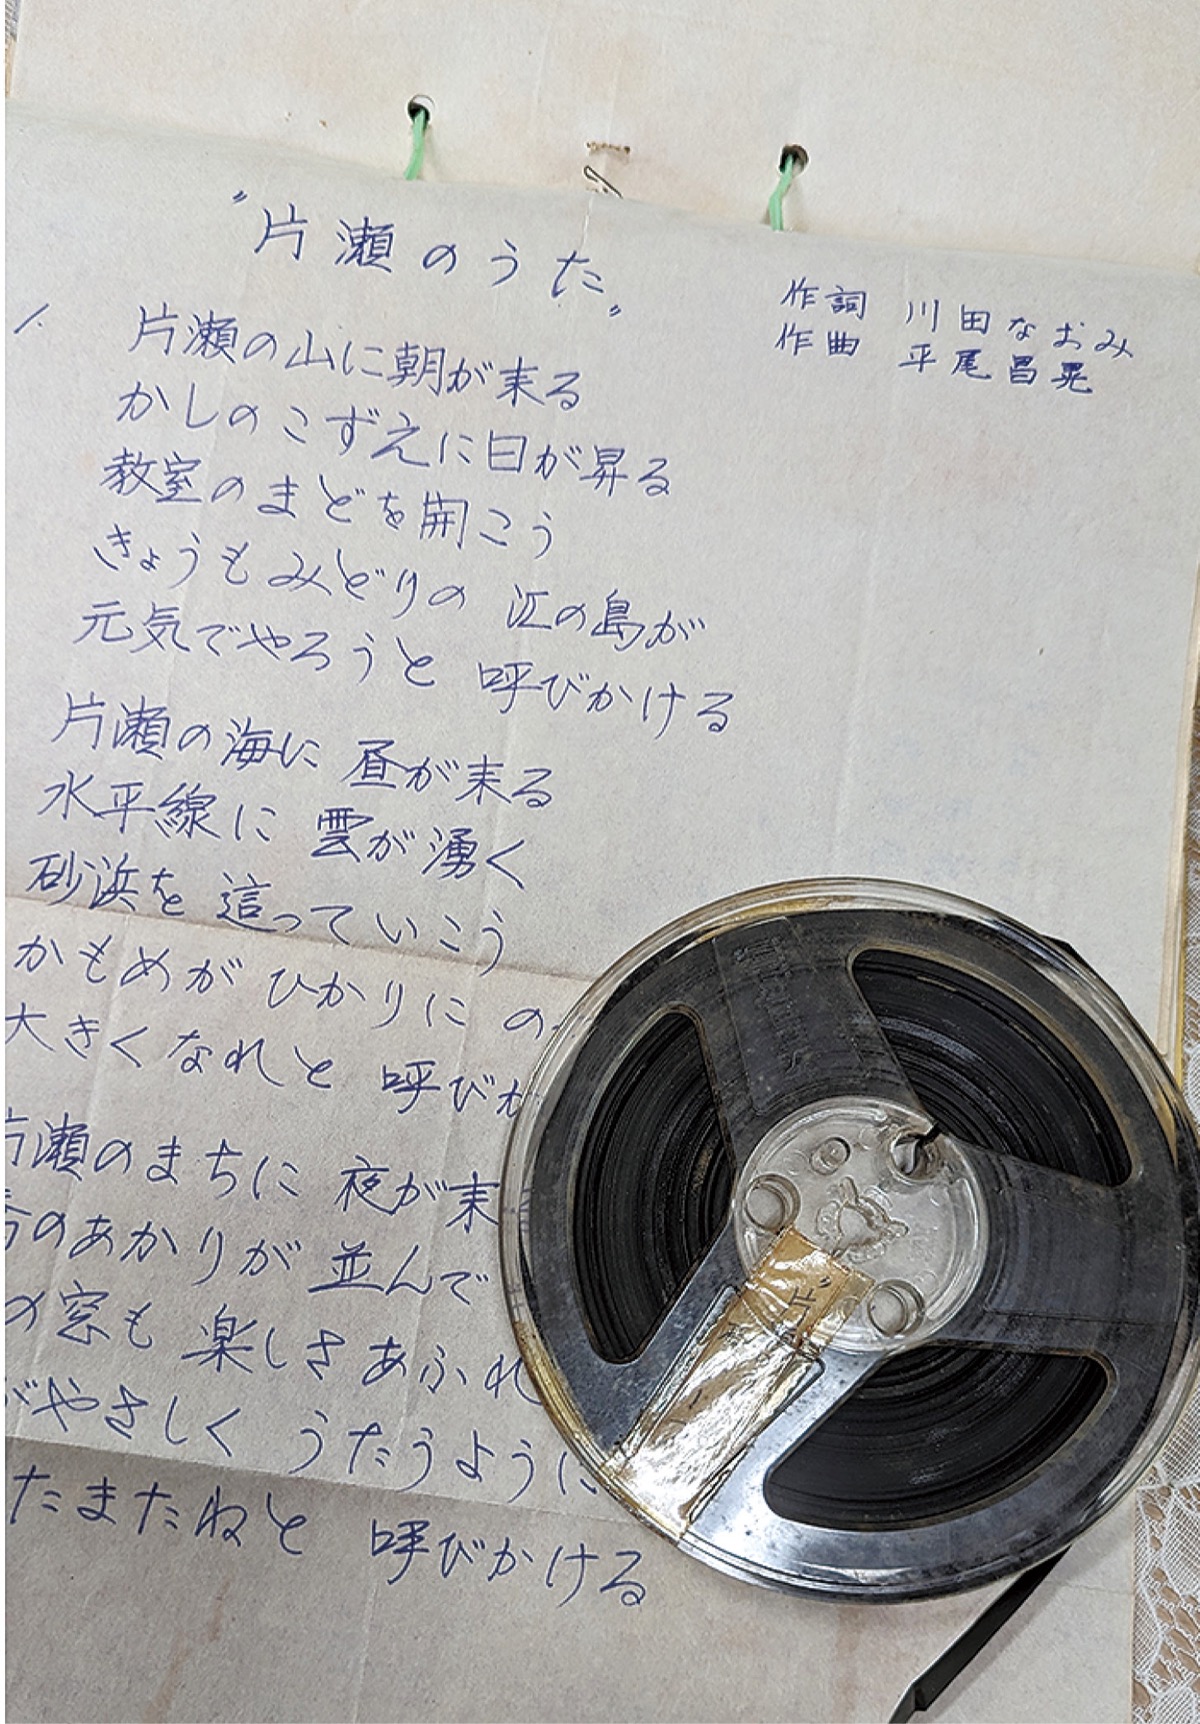 "片瀬のうた"
作詞 川田なおみ
作曲 平尾昌晃
1.
片瀬の山に朝が来る
かしのこずえに日が昇る
教室のまどを開こう
きょうもみどりの 江の島が
元気でやろうと 呼びかける
片瀬の海に 昼が来る
水平線に 雲が湧く
砂浜を 這っていこう
かもめがひかりに の
大きくなれと 呼びか
片瀬のまちに 夜が来
のあかりが 並んで
の窓も 楽しさあふれ
がやさしく うたうように
たまたねと 呼びかける
"片